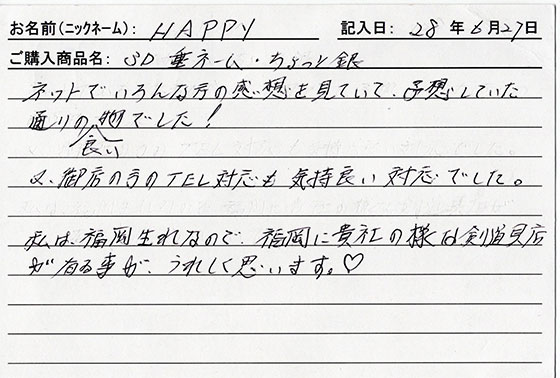 お名前(ニックネーム): HAPPY 記入日: 28年6月27日
ご購入商品名: SD 垂ネーム・ちょっと銀
ネットでいろんな方の感想を見ていて、予想していた
通りの良い物でした!
又、御店の方のTEL対応も気持良い対応でした。
私は、福岡生れなので、福岡に貴社の様な剣道具店
が有る事が、うれしく思います。♡